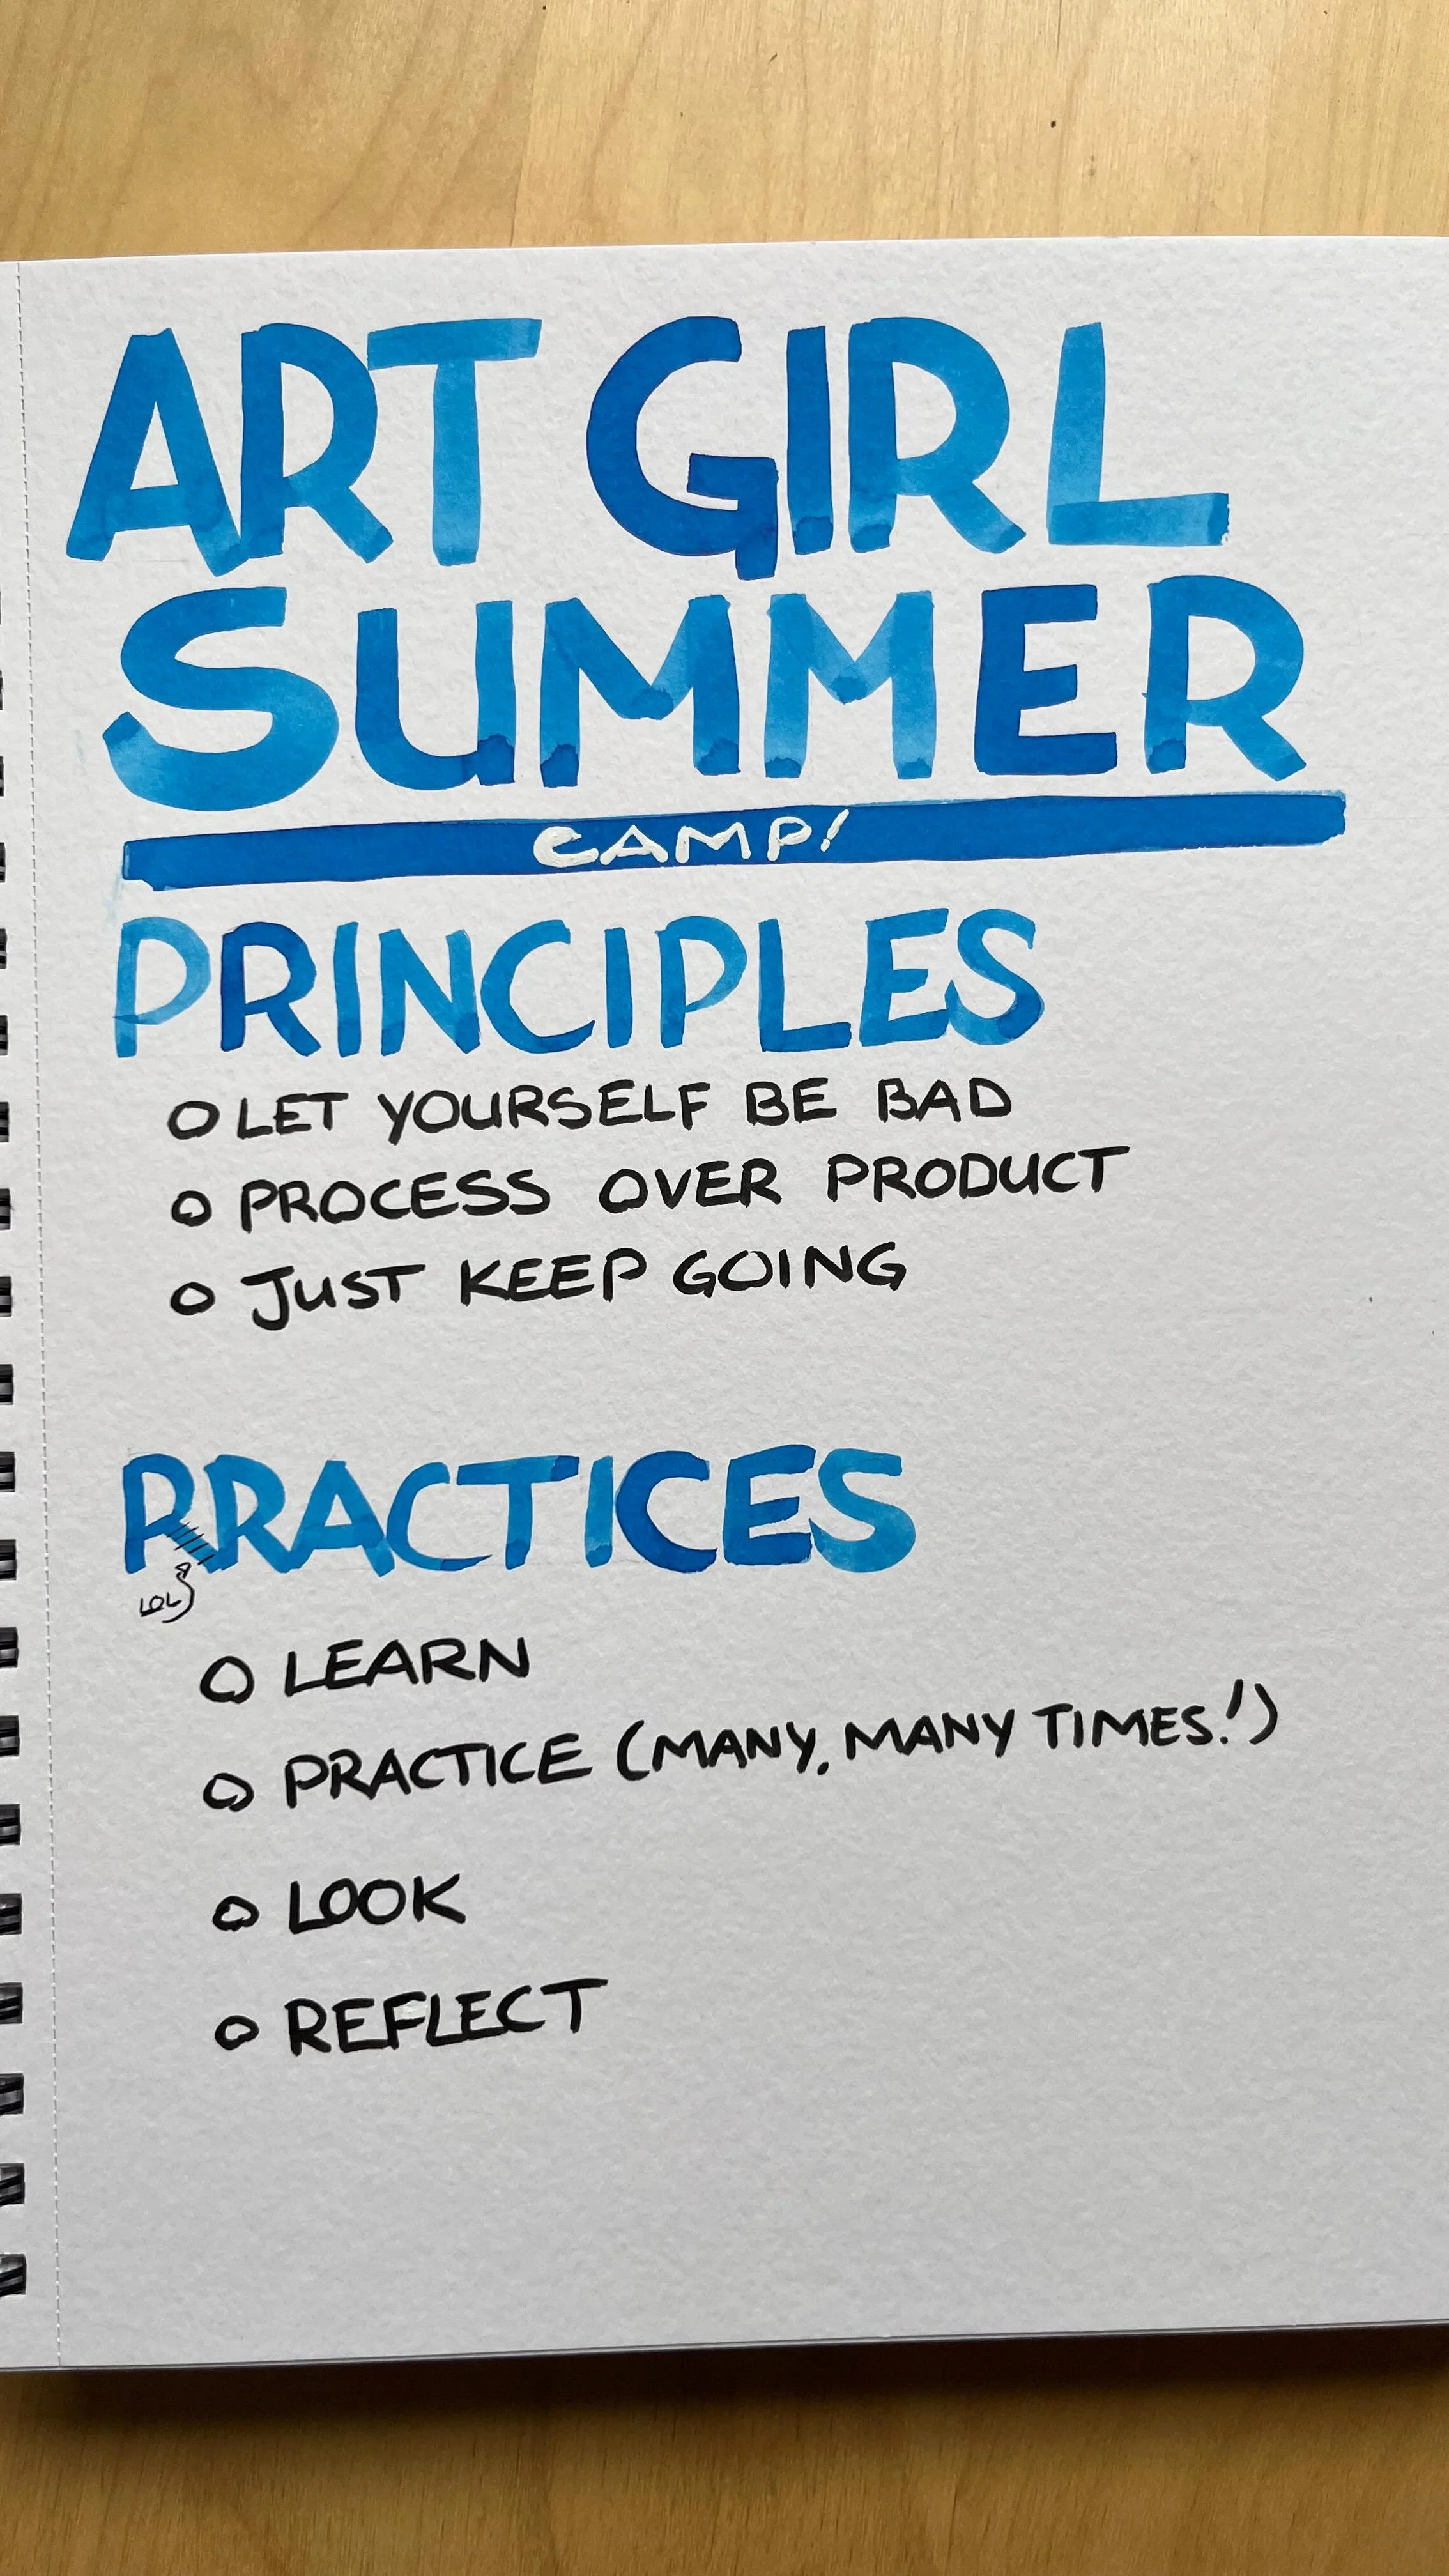 ART GIRL
SUMMER
CAMP!
PRINCIPLES
O LET YOURSELF BE BAD
O PROCESS OVER PRODUCT
O JUST KEEP GOING
PRACTICES
LOL
O LEARN
O PRACTICE (MANY, MANY TIMES!)
O LOOK
O REFLECT